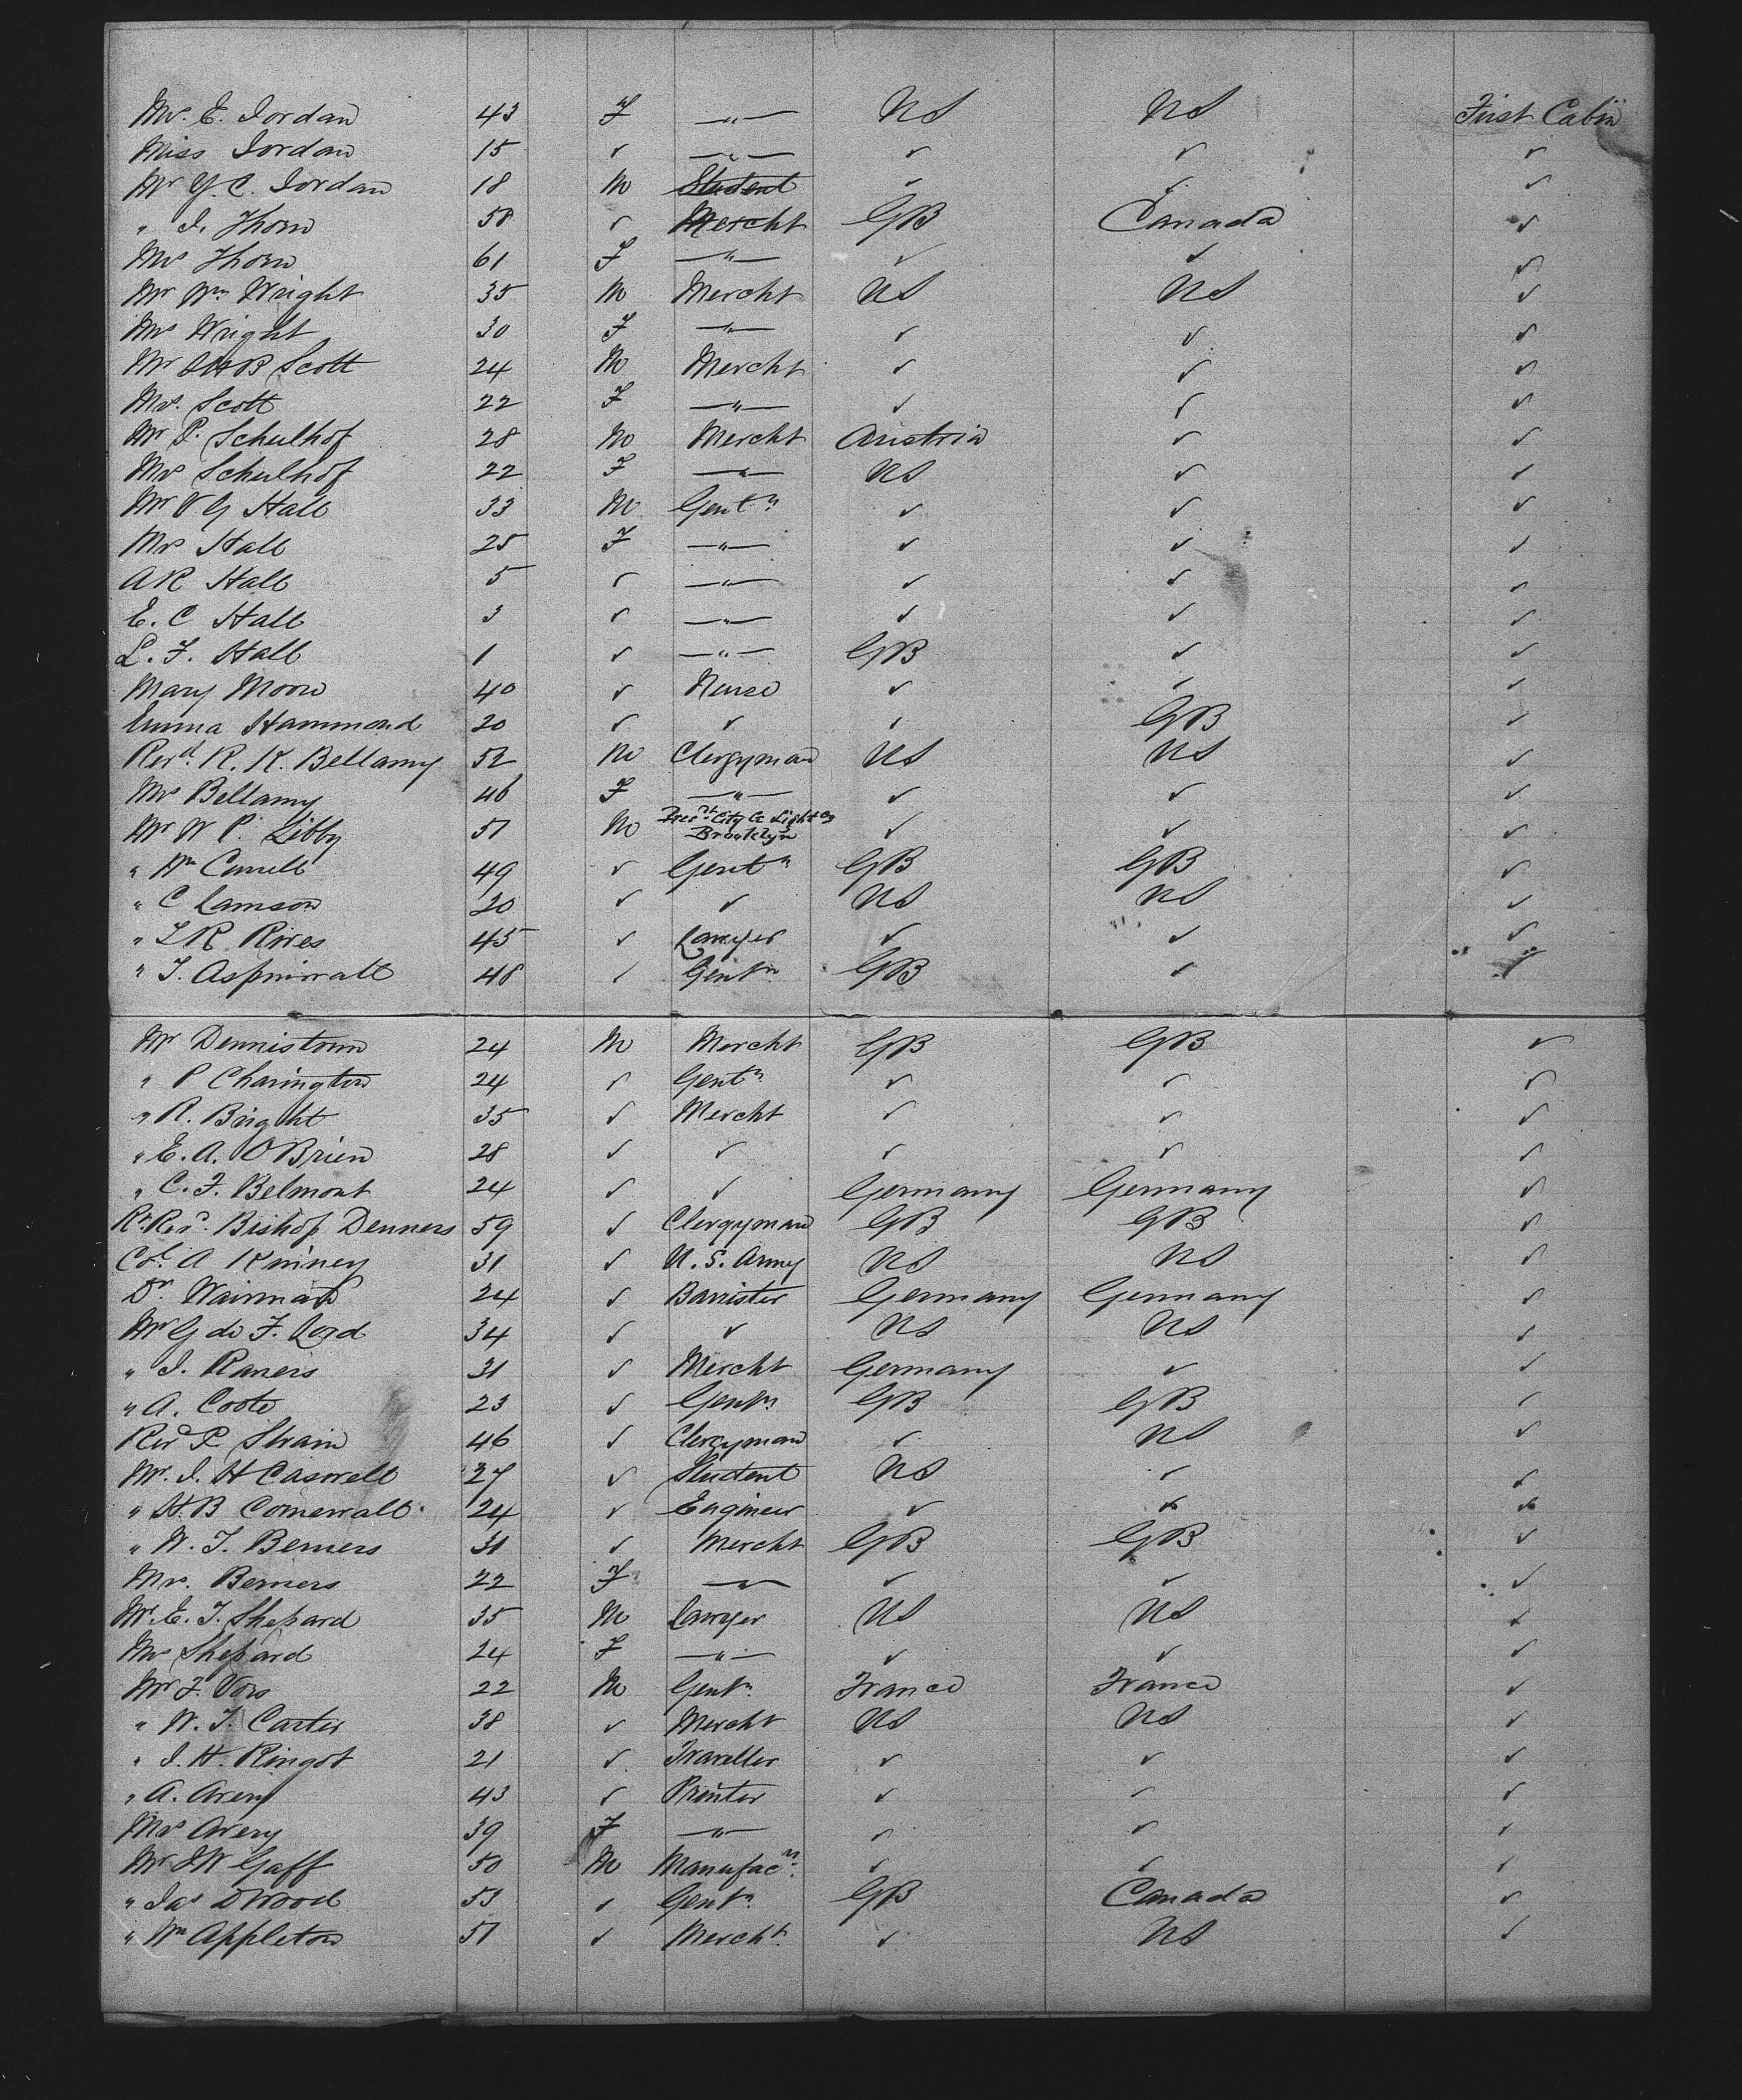 Mrs. E. Jordan 43 F —"— US US First Cabin
Miss Jordan 15 ✓ —"— ✓ ✓ ✓
Mr Y. C. Jordan 18 M Student ✓ ✓ ✓
" J. Thorn 58 ✓ Mercht GB Canada ✓
Mrs Thorn 61 F —"— ✓ ✓ ✓
Mr Wm Wright 35 M Mercht US US ✓
Mrs Wright 30 F —"— ✓ ✓ ✓
Mr Scott 24 M Mercht ✓ ✓ ✓
Mrs. Scott 22 F —"— ✓ ✓ ✓
Mr P. Schulhof 28 M Mercht Austria ✓ ✓
Mrs Schulhof 22 F —"— US ✓ ✓
Mr V G Hall 33 M Gentn ✓ ✓ ✓
Mrs Hall 25 F —"— ✓ ✓ ✓
A R Hall 5 ✓ —"— ✓ ✓ ✓
E. C Hall 3 ✓ —"— ✓ ✓ ✓
L. F. Hall 1 ✓ —"— GB ✓ ✓
Mary Moore 40 ✓ Nurse ✓ ✓ ✓
Emma Hammond 20 ✓ ✓ ✓ GB ✓
Revd. R. K. Bellamy 52 M Clergyman US US ✓
Mrs Bellamy 46 F —"— ✓ ✓ ✓
Mr W P. Libby 51 M City Light Co Brooklyn ✓ ✓ ✓
" Wm 49 ✓ Gentn GB GB ✓
" C Lamson 20 ✓ ✓ US US ✓
" Rives 45 ✓ Lawyer ✓ ✓ ✓
" J. Aspinwall 48 ✓ Gentn GB ✓ ✓
Mr Dennistoun 24 M Mercht GB GB ✓
" P Charington 24 ✓ Gentn ✓ ✓ ✓
" R. Bright 35 ✓ Mercht ✓ ✓ ✓
" E. A. O'Brien 28 ✓ ✓ ✓ ✓ ✓
" C. F. Belmont 24 ✓ ✓ Germany Germany ✓
Rt. Revd. Bishop Denners 59 ✓ Clergyman GB GB ✓
Col. A Kniney 31 ✓ U. S. Army US US ✓
Dr. 24 ✓ Barrister Germany Germany ✓
Mr G de F. Lord 34 ✓ ✓ US US ✓
" J. Raners 31 ✓ Mercht Germany ✓ ✓
" A. Coote 23 ✓ Gentn GB GB ✓
Revd P. Strain 46 ✓ Clergyman ✓ US ✓
Mr. J. H Caswell 27 ✓ Student US ✓ ✓
" H. B Cornewall 24 ✓ Engineer ✓ ✓ ✓
" W. J. Berners 31 ✓ Mercht GB GB ✓
Mrs. Berners 22 F —"— ✓ ✓ ✓
Mr. E. F. Shepard 35 M Lawyer US US ✓
Mrs Shepard 24 F —"— ✓ ✓ ✓
Mr F. Vors 22 M Gentn. France France ✓
" W. T. Carter 38 ✓ Mercht US US ✓
" J. H. Ringot 21 ✓ Traveller ✓ ✓ ✓
" A. Avery 43 ✓ Printer ✓ ✓ ✓
Mrs Avery 39 F —"— ✓ ✓ ✓
Mr J W Gaff 50 M Manufacr. ✓ ✓ ✓
" Jas D Wood 53 ✓ Gentn. GB Canada ✓
" Wm Appleton 51 ✓ Mercht. ✓ US ✓